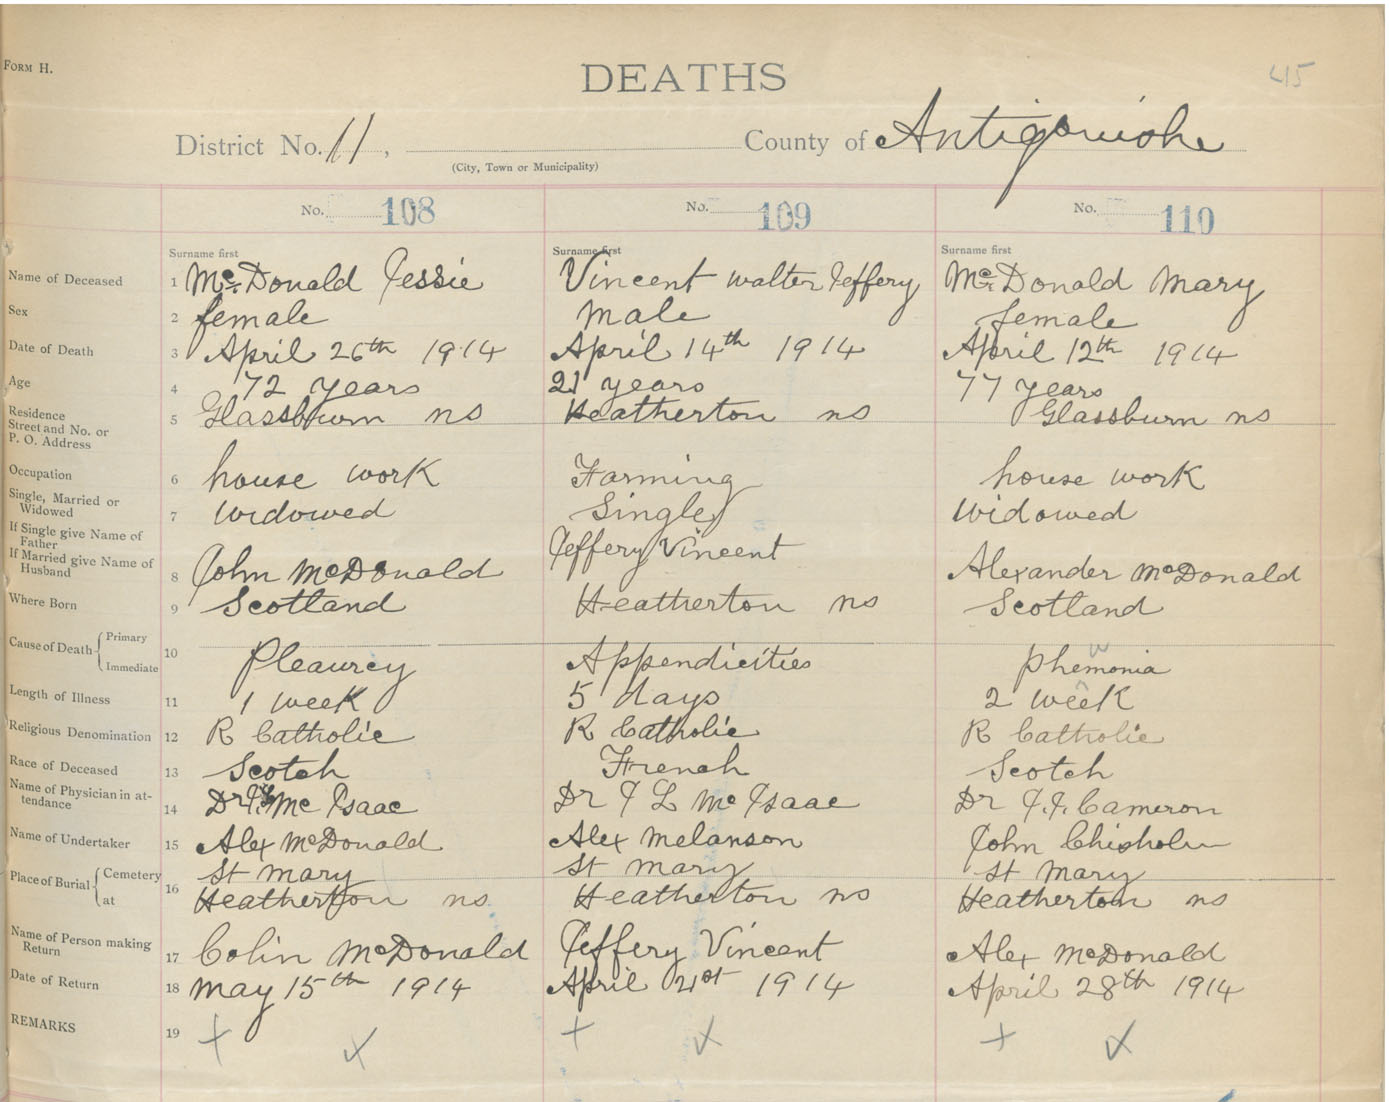 FORM H.
DEATHS
415
District No. 11, County of Antigonishe
(City, Town or Municipality)
No. 108 No. 109 No. 110
Surname first Surname first Surname first
Name of Deceased 1 McDonald Jessie Vincent walter Jeffery McDonald Mary
Sex 2 female male female
Date of Death 3 April 26th 1914 April 14th 1914 April 12th 1914
Age 4 72 years 21 years 77 years
Residence
Street and No. or
P. O. Address 5 Glassburn ns Heatherton ns Glassburn ns
Occupation 6 house work Farming house work
Single, Married or
Widowed 7 widowed Single widowed
If Single give Name of
Father
If Married give Name of
Husband 8 John McDonald Jeffery Vincent Alexander McDonald
Where Born 9 Scotland Heatherton ns Scotland
Cause of Death { Primary
Immediate 10 Pleaurcy Appendicities phemonia
Length of Illness 11 1 week 5 days 2 week
Religious Denomination 12 R Catholic R Catholic R Catholic
Race of Deceased 13 Scotch French Scotch
Name of Physician in at-
tendance 14 Dr Mc Isaac Dr J L Mc Isaac Dr J.J. Cameron
Name of Undertaker 15 Alex McDonald Alex melanson John Chisholm
Place of Burial { Cemetery St mary St mary St mary
at 16 Heatherton ns Heatherton ns Heatherton ns
Name of Person making
Return 17 Colin McDonald Jeffery Vincent Alex McDonald
Date of Return 18 may 15th 1914 April 21st 1914 April 28th 1914
REMARKS 19